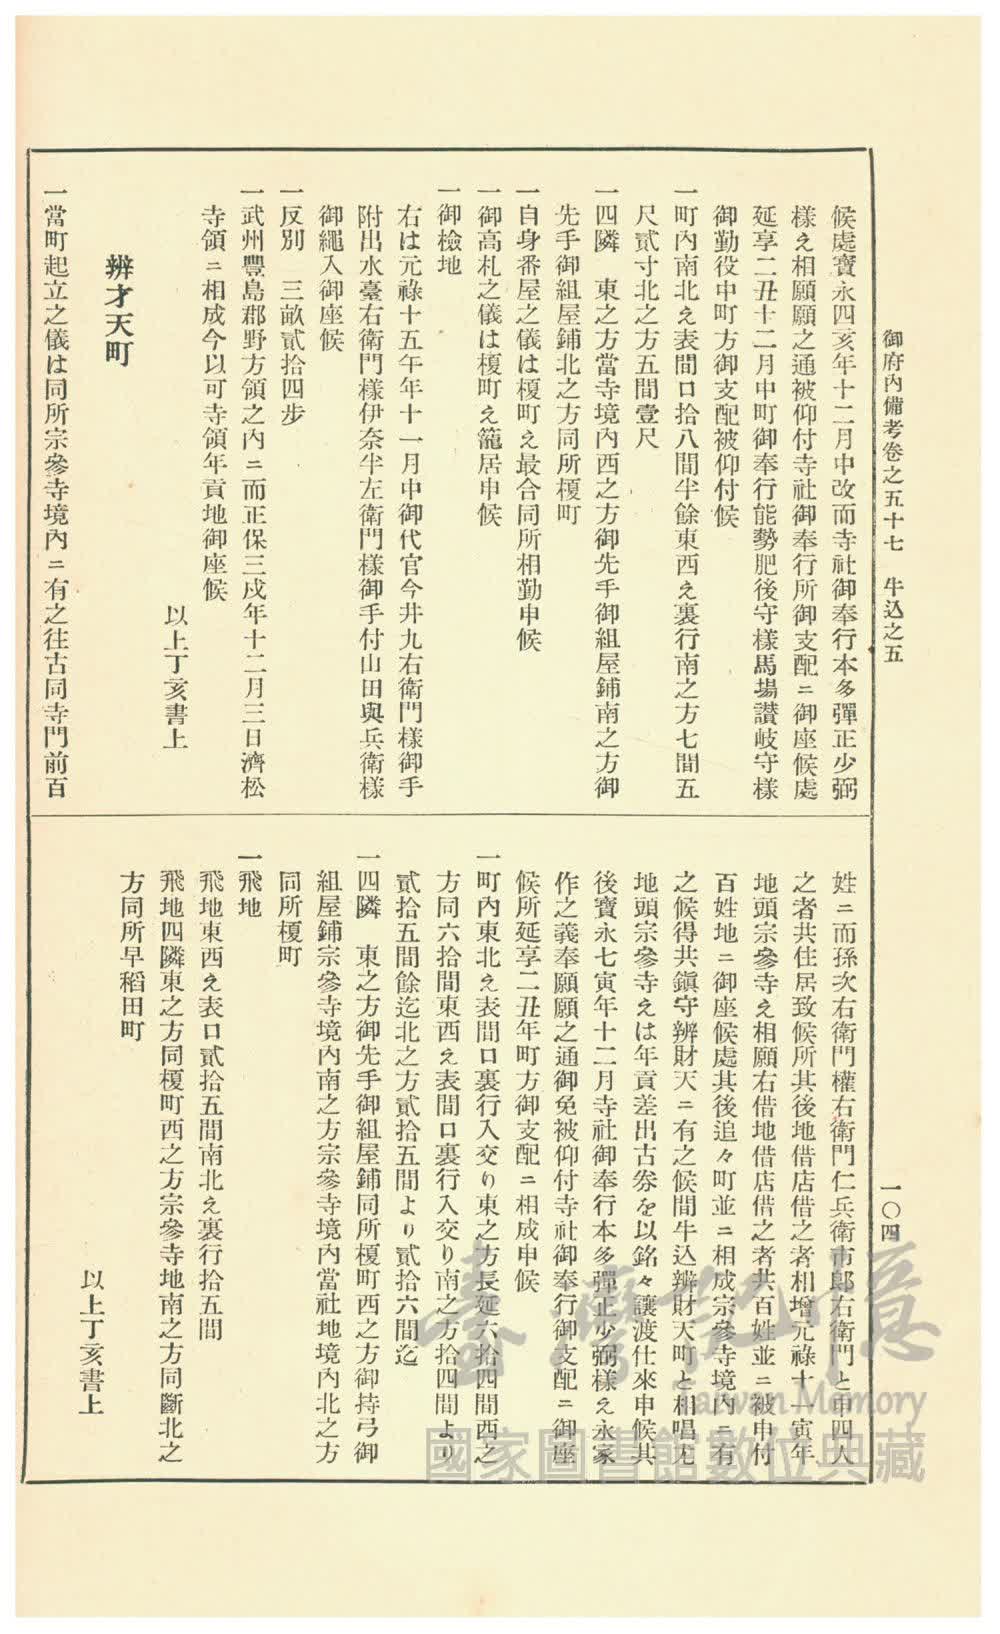 御府內備考卷之五十七　牛込之五
一〇四
候處寶永四亥年十二月中改而寺社御奉行本多彈正少弼
樣え相願願之通被仰付寺社御奉行所御支配ニ御座候處
延享二丑十二月中町御奉行能勢肥後守樣馬場讃岐守樣
御勤役中町方御支配被仰付候
一町內南北え表間口拾八間半餘東西え裏行南之方七間五
尺貳寸北之方五間壹尺
一四隣　東之方當寺境內西之方御先手御組屋鋪南之方御
先手御組屋鋪北之方同所榎町
一自身番屋之儀は榎町え最合同所相勤申候
一御高札之儀は榎町え籠居申候
一御檢地
右は元祿十五午年十一月中御代官今井九右衛門樣御手
附出水臺右衛門樣伊奈半左衛門樣御手付山田與兵衛樣
御繩入御座候
一反別　三畝貳拾四步
一武州豐島郡野方領之內ニ而正保三戌年十二月三日濟松
寺領ニ相成今以可寺領年貢地御座候
以上丁亥書上
辨才天町
一當町起立之儀は同所宗參寺境內ニ有之往古同寺門前百
姓ニ而孫次右衛門權右衛門仁兵衛市郎右衛門と申四人
之者共住居致候所其後地借店借之者相增元祿十一寅年
地頭宗參寺え相願右借地借店借之者共百姓並ニ被申付
百姓地ニ御座候處其後追々町並ニ相成宗參寺境內ニ有
之候得共鎭守辨財天ニ有之候間牛込辨財天町と相唱尤
地頭宗參寺えは年貢差出古券を以銘々讓渡仕來申候其
後寶永七寅年十二月寺社御奉行本多彈正少弼樣え永家
作之義奉願願之通御免被仰付寺社御奉行御支配ニ御座
候所延享二丑年町方御支配ニ相成申候
一町內東北え表間口裏行入交り東之方長延六拾四間西之
方同六拾間東西え表間口裏行入交り南之方拾四間より
貳拾五間餘迄北之方貳拾五間より貳拾六間迄
一四隣　東之方御先手御組屋鋪同所榎町西之方御持弓御
組屋鋪宗參寺境內南之方宗參寺境內當社地境內北之方
同所榎町
一飛地
飛地東西え表口貳拾五間南北え裏行拾五間
飛地四隣東之方同榎町西之方宗參寺地南之方同斷北之
方同所早稻田町
以上丁亥書上
臺灣記憶
Taiwan Memory
國家圖書館數位典藏